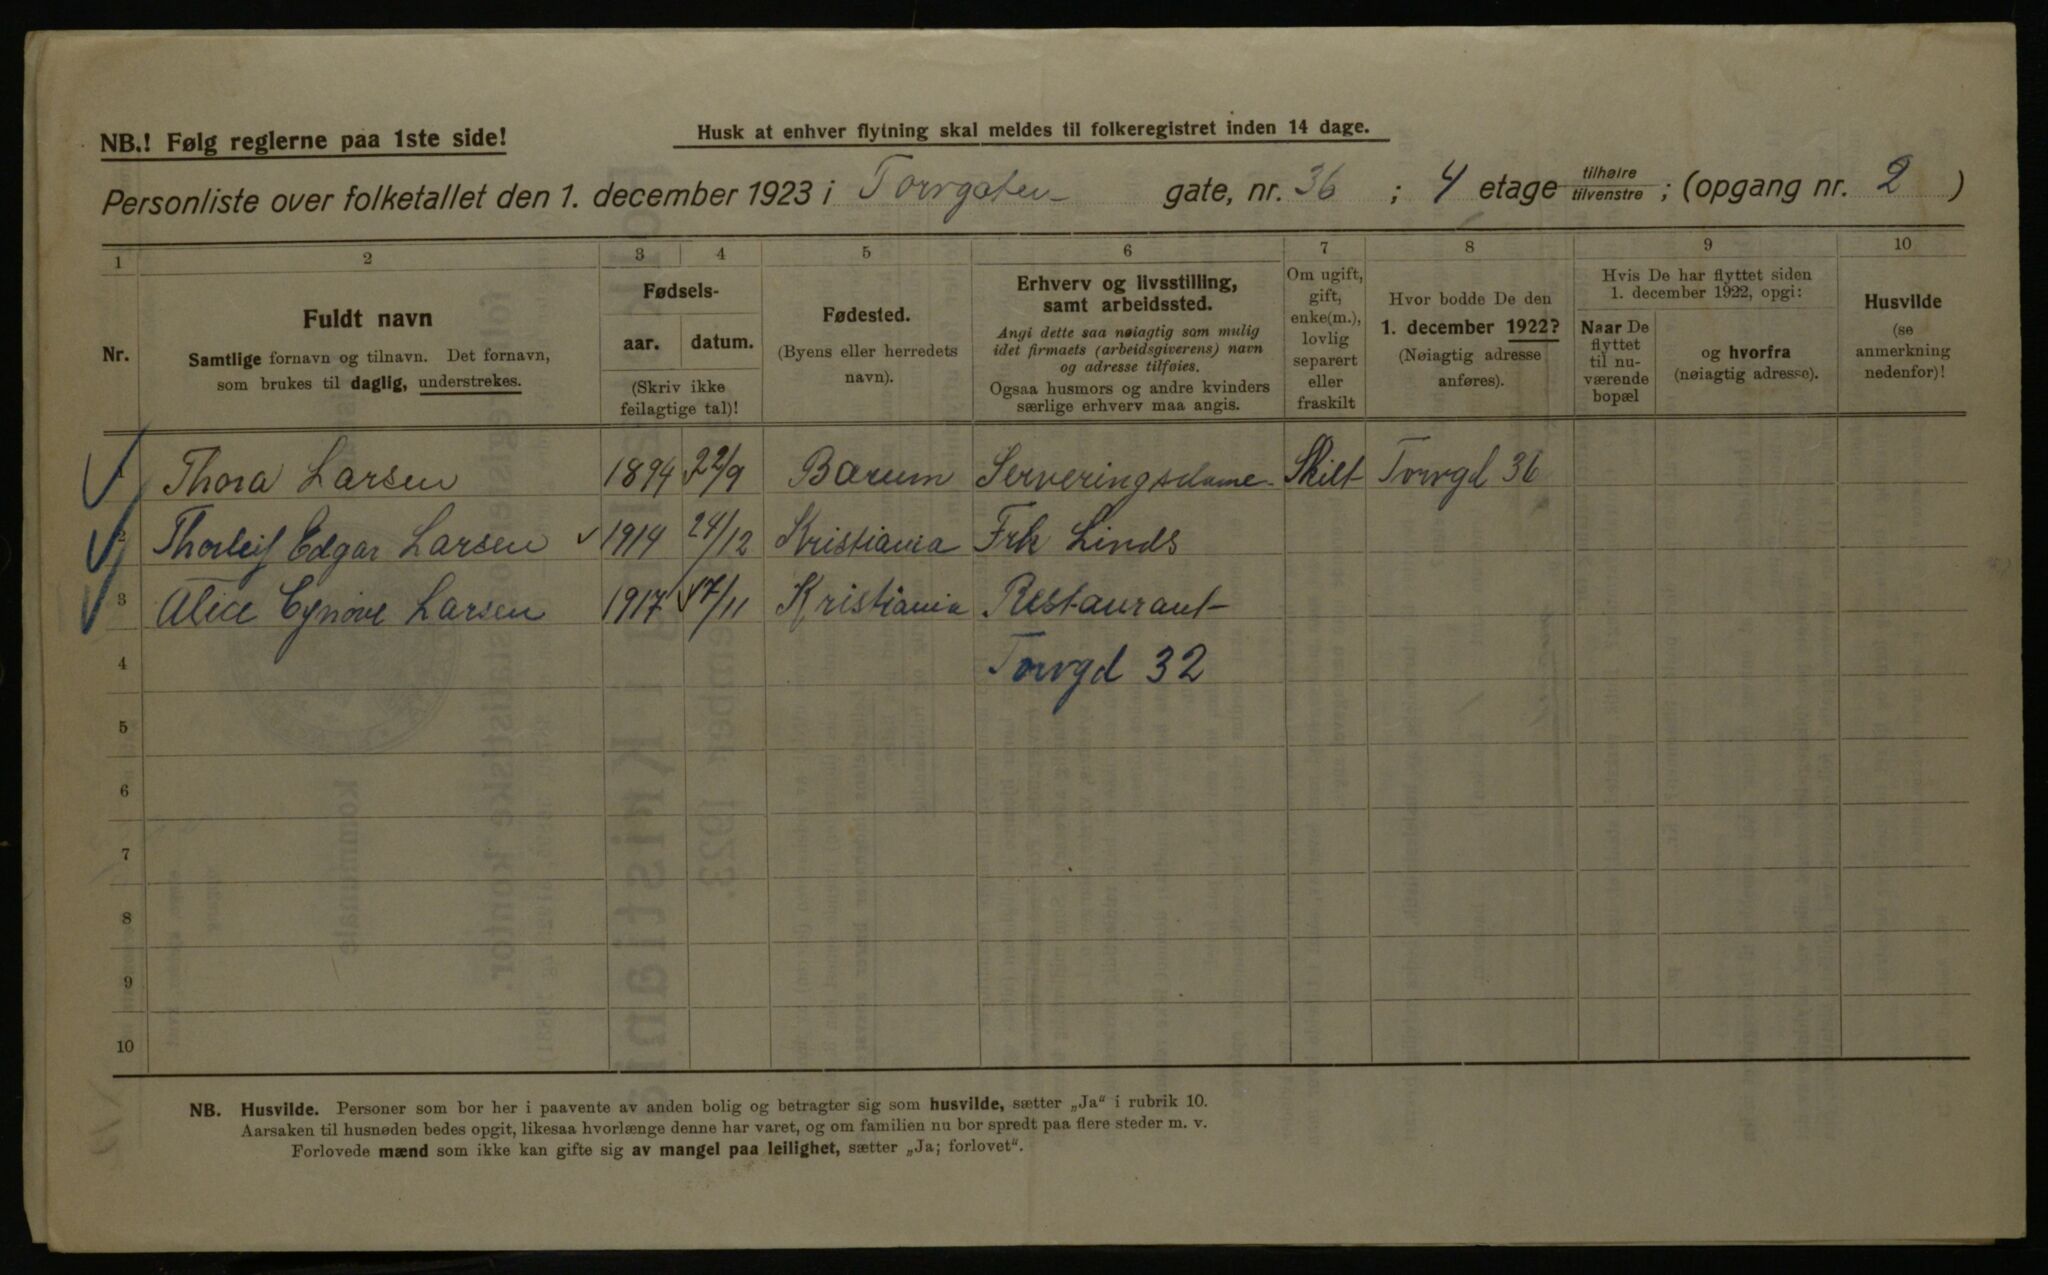 NB.! Følg reglerne paa 1ste side!
Husk at enhver flytning skal meldes til folkeregistret inden 14 dage.
Personliste over folketallet den 1. december 1923 i Torvgaten gate, nr. 36 ; 4 etage tilhøire tilvenstre ; (opgang nr. 2 )
1 2 3 4 5 6 7 8 9 10
Nr.
Fuldt navn
Samtlige fornavn og tilnavn. Det fornavn,
som brukes til daglig, understrekes.
Fødsels-
aar. datum.
(Skriv ikke
feilagtige tal)!
Fødested.
(Byens eller herredets
navn).
Erhverv og livsstilling,
samt arbeidssted.
Angi dette saa nøiagtig som mulig
idet firmaets (arbeidsgiverens) navn
og adresse tilføies.
Ogsaa husmors og andre kvinders
særlige erhverv maa angis.
Om ugift,
gift,
enke(m.),
lovlig
separert
eller
fraskilt
Hvor bodde De den
1. december 1922?
(Nøiagtig adresse
anføres).
Hvis De har flyttet siden
1. december 1922, opgi:
Naar De
flyttet
til nu-
værende
bopæl
og hvorfra
(nøiagtig adresse).
Husvilde
(se
anmerkning
nedenfor)!
Thora Larsen 1894 22/9 Bærum Serveringsdame Skilt Torvgd 36
2 Thorleif Edgar Larsen 1914 24/12 Kristiania Frk Linds
3 Alice Synøve Larsen 1917 17/11 Kristiania Restaurant
4 Torvgd 32
5
6
7
8
9
10
NB. Husvilde. Personer som bor her i paavente av anden bolig og betragter sig som husvilde, sætter „Ja“ i rubrik 10.
Aarsaken til husnøden bedes opgit, likesaa hvorlænge denne har varet, og om familien nu bor spredt paa flere steder m. v.
Forlovede mænd som ikke kan gifte sig av mangel paa leilighet, sætter „Ja; forlovet“.